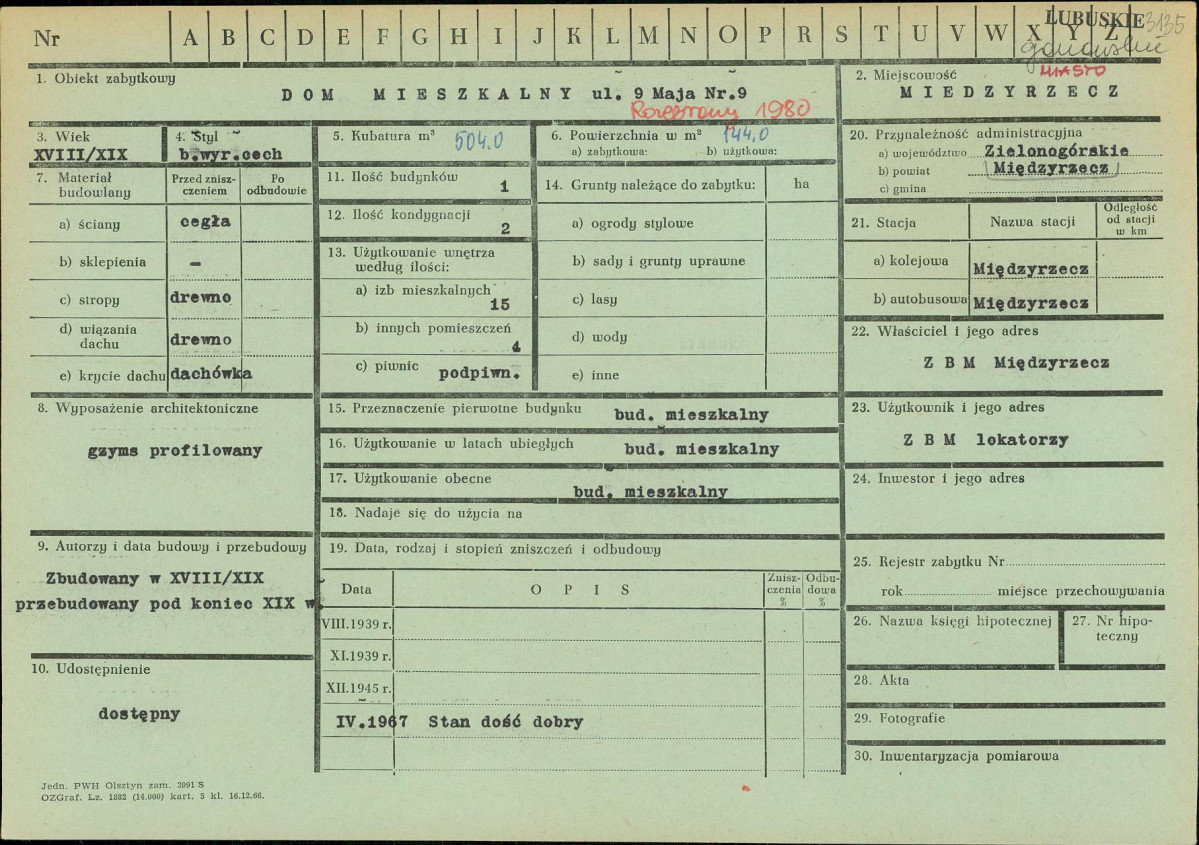 Nr A B C D E F G H I J K L M N O P R S T U V W X Y Z
LUBUSKIE 3135
1. Obiekt zabytkowy
DOM MIESZKALNY ul. 9 Maja Nr.9
Rozebrany 1980
2. Miejscowość MIASTO
MIEDZYRZECZ
3. Wiek
XVIII/XIX
4. Styl
b.wyr.cech
5. Kubatura m³ 504.0
6. Powierzchnia w m² 144.0
a) zabytkowa: b) użytkowa:
7. Materiał budowlany
Przed zniszczeniem
Po odbudowie
a) ściany cegła
b) sklepienia -
c) stropy drewno
d) wiązania dachu drewno
e) krycie dachu dachówka
8. Wyposażenie architektoniczne
gzyms profilowany
9. Autorzy i data budowy i przebudowy
Zbudowany w XVIII/XIX
przebudowany pod koniec XIX w.
10. Udostępnienie
dostępny
11. Ilość budynków 1
12. Ilość kondygnacji 2
13. Użytkowanie wnętrza
według ilości:
a) izb mieszkalnych 15
b) innych pomieszczeń 4
c) piwnic podpiwn.
14. Grunty należące do zabytku: ha
a) ogrody stylowe
b) sady i grunty uprawne
c) lasy
d) wody
e) inne
15. Przeznaczenie pierwotne budynku bud. mieszkalny
16. Użytkowanie w latach ubiegłych bud. mieszkalny
17. Użytkowanie obecne bud. mieszkalny
18. Nadaje się do użycia na
19. Data, rodzaj i stopień zniszczeń i odbudowy
Data OPIS Zniszczenia % Odbudowa %
VIII.1939 r.
XI.1939 r.
XII.1945 r.
IV.1967 Stan dość dobry
20. Przynależność administracyjna
a) województwo Zielonogórskie
b) powiat Międzyrzecz
c) gmina
21. Stacja Nazwa stacji Odległość od stacji w km
a) kolejowa Międzyrzecz
b) autobusowa Międzyrzecz
22. Właściciel i jego adres
Z B M Międzyrzecz
23. Użytkownik i jego adres
Z B M lokatorzy
24. Inwestor i jego adres
25. Rejestr zabytku Nr
rok miejsce przechowywania
26. Nazwa księgi hipotecznej
27. Nr hipoteczny
28. Akta
29. Fotografie
30. Inwentaryzacja pomiarowa
Jedn. PWH Olsztyn zam. 3991 S
OZGraf. Lz. 1882 (14.000) kart. 5 kl. 16.12.66.